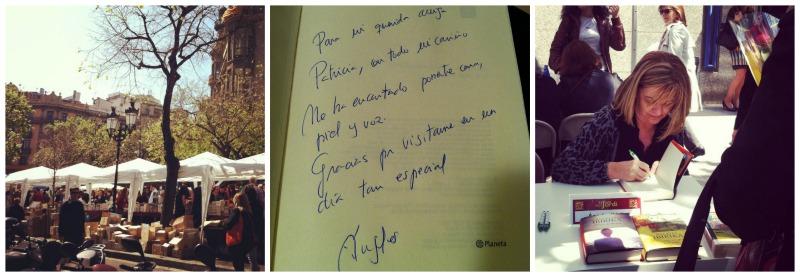 Para mi querida amiga
Patricia, con todo mi cariño
Me ha encantado ponerte cara,
piel y voz.
Gracias por visitarme en un
día tan especial
Planeta